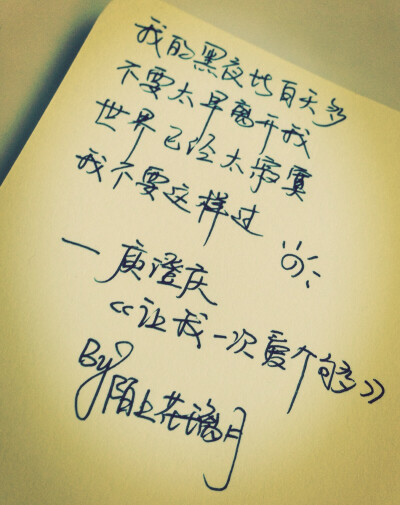 我的黑夜比白天多
不要太早离开我
世界已经太寂寞
我不要这样过
—庾澄庆
《让我一次爱个够》
By
陌上花漓月